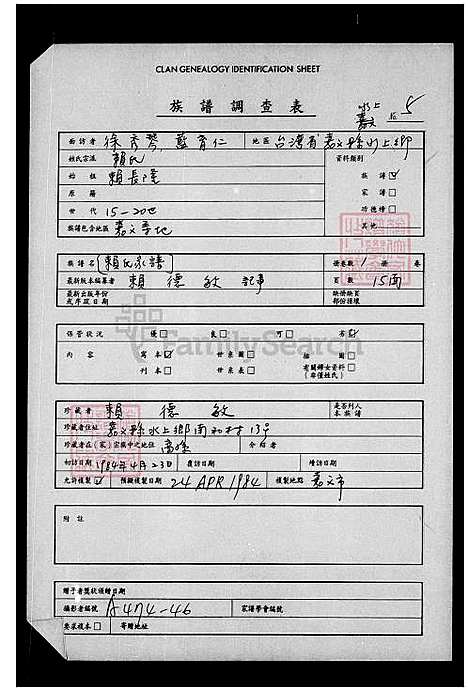 CLAN GENEALOGY IDENTIFICATION SHEET
族譜調查表
水上
嘉义 № 5
面訪者 徐彥琴 藍育仁 地區 台湾省嘉义縣水上鄉
姓氏宗派 賴氏 資料類別
始祖 賴長隆 族譜☑
原籍 家譜☐
世代 15-20世 功德榜☐
族譜包含地區 嘉义等地 其他
族譜名 [賴氏家譜] 冊卷數 冊 卷
最新版本編纂者 賴德敏 記事 頁數 15面
最新出版年份或序跋日期 缺冊缺頁部份損壞
保管狀況 ☐優 良☐ 可☐ 劣☑
內容 寫本☑ 世系圖☐ 插圖☐
刊本☐ 世系表☐ 有關婦女資料☐(非僅姓氏)
FamilySearch
珍藏者 賴德敏 是否列入本族譜
珍藏者住址 嘉义縣水上鄉南和村13号
珍藏者在(家)宗族中之地位 裔孫 介紹者
初訪日期 1984年4月23日 復訪日期 續訪日期
允許複製☑ 預擬複製日期 24 APR 1984 複製地點 嘉义市
附註
贈予者獎狀頒贈日期
攝影者編號 A474-46 家譜學會編號
要求複本☐ 寄贈地址